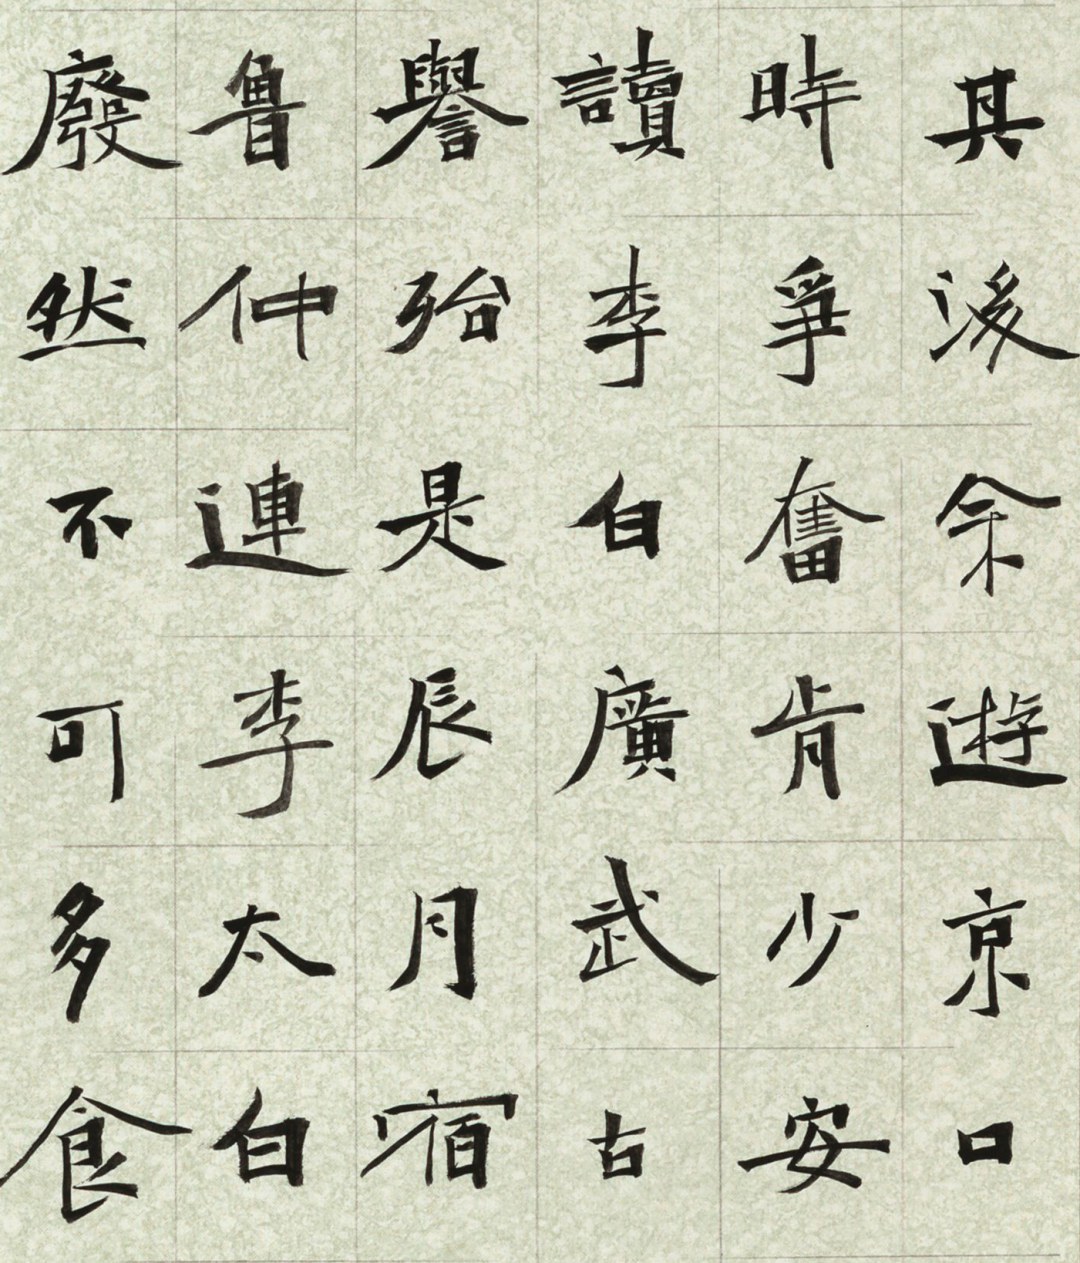 其後余遊京口
時爭奮肯少安
讀李白廣武古
譽殆是辰月宿
魯仲連李太白
廢然不可多食